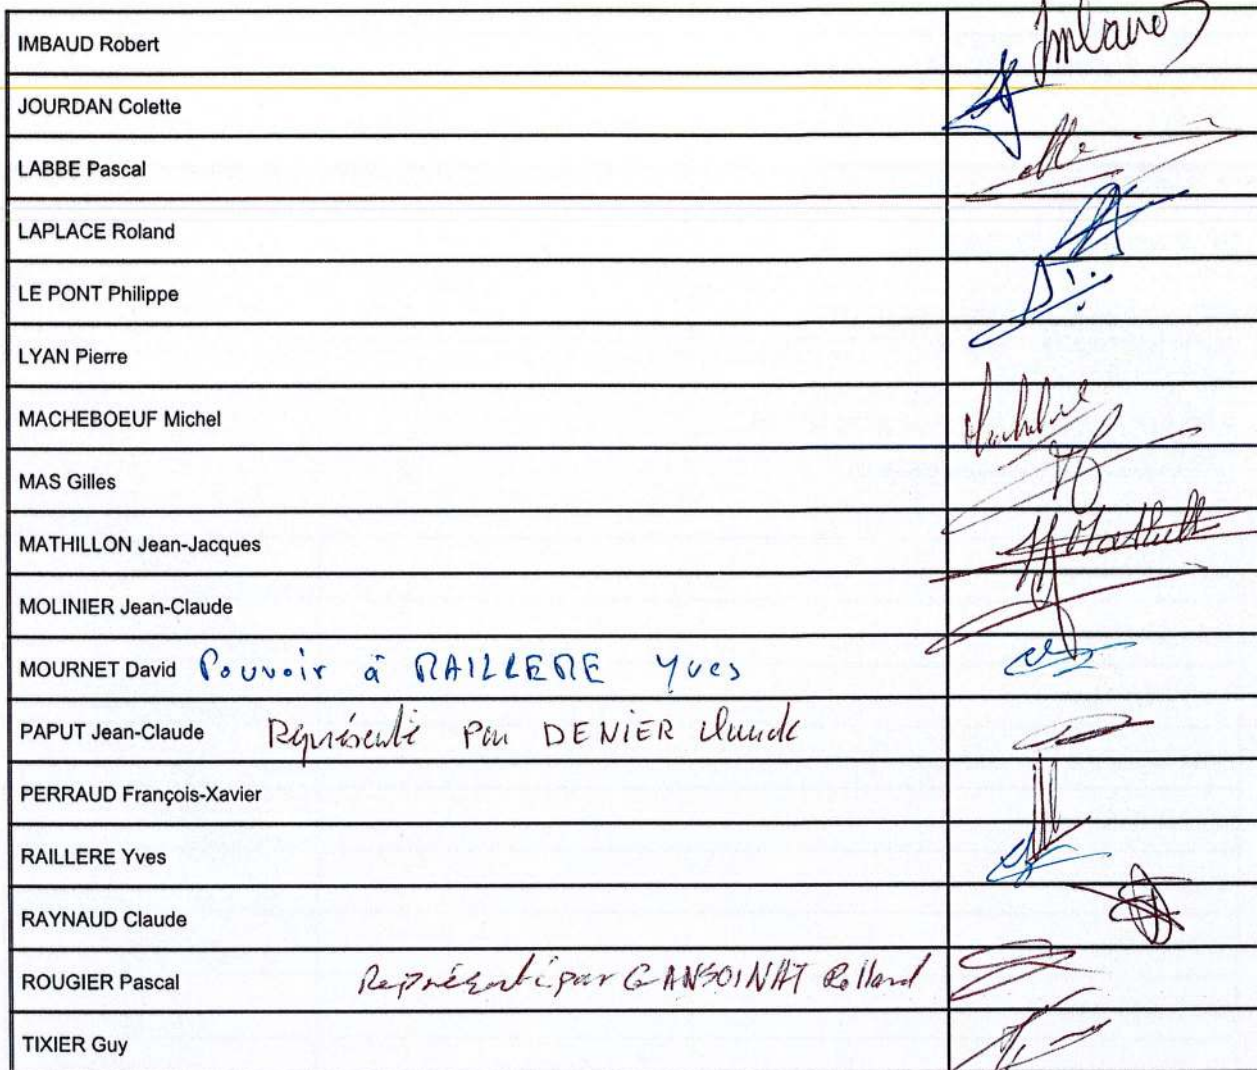 IMBAUD Robert
JOURDAN Colette
LABBE Pascal
LAPLACE Roland
LE PONT Philippe
LYAN Pierre
MACHEBOEUF Michel
MAS Gilles
MATHILLON Jean-Jacques
MOLINIER Jean-Claude
MOURNET David Pouvoir à RAILLERE Yves
PAPUT Jean-Claude Représenté Par DENIER Claude
PERRAUD François-Xavier
RAILLERE Yves
RAYNAUD Claude
ROUGIER Pascal Représenté par GANSOINAT Rolland
TIXIER Guy